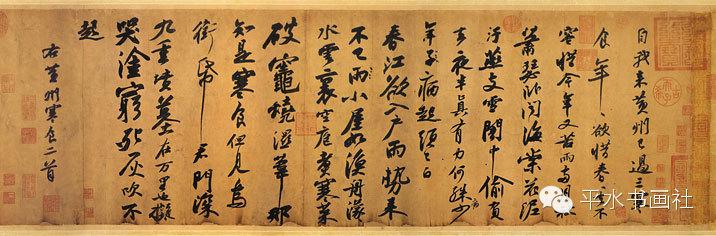 自我來黃州已過三寒
食年々欲惜春春去不
容惜今年又苦雨兩月秋
蕭瑟臥聞海棠花泥
汙燕支雪闇中偷負
去夜半真有力何殊病少
年子病起頭已白
春江欲入戶雨勢來
不已雨小屋如漁舟濛々
水雲裏空庖煮寒菜
破竈燒濕葦那
知是寒食但見烏
銜帋君門深
九重墳墓在万里也擬
哭塗窮死灰吹不
起
右黃州寒食二首
平水书画社